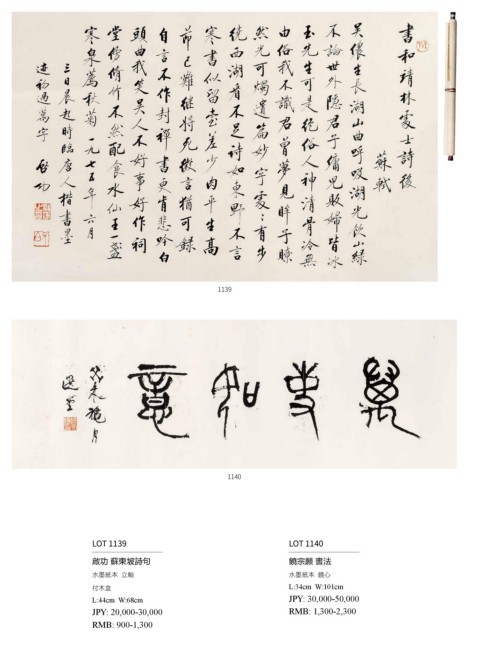 書和靖林處士詩後
蘇軾
吳儂生長湖山曲呼吸湖光飲山綠
不論世外隱君子傭兒販婦皆冰
玉先生可是絕俗人神清骨冷無
由俗我不識君曾夢見眸子瞭
然光可燭遺篇妙字處處有步
繞西湖看不足詩如東野不言
寒書似留臺差少肉平生高
節已難繼將死微言猶可錄
自言不作封禪書更肯悲吟白
頭曲我笑吳人不好事好作祠
堂傍脩竹不然配食水仙王一盞
寒泉薦秋菊一九七五年六月
三日晨起時臨唐人楷書墨
迹初過萬字 啟功
1139
萬事如意
癸未穐月
選堂
1140
LOT 1139
啟功 蘇東坡詩句
水墨紙本 立軸
付木盒
L:44cm W:68cm
JPY: 20,000-30,000
RMB: 900-1,300
LOT 1140
饒宗頤 書法
水墨紙本 鏡心
L:34cm W:101cm
JPY: 30,000-50,000
RMB: 1,300-2,300